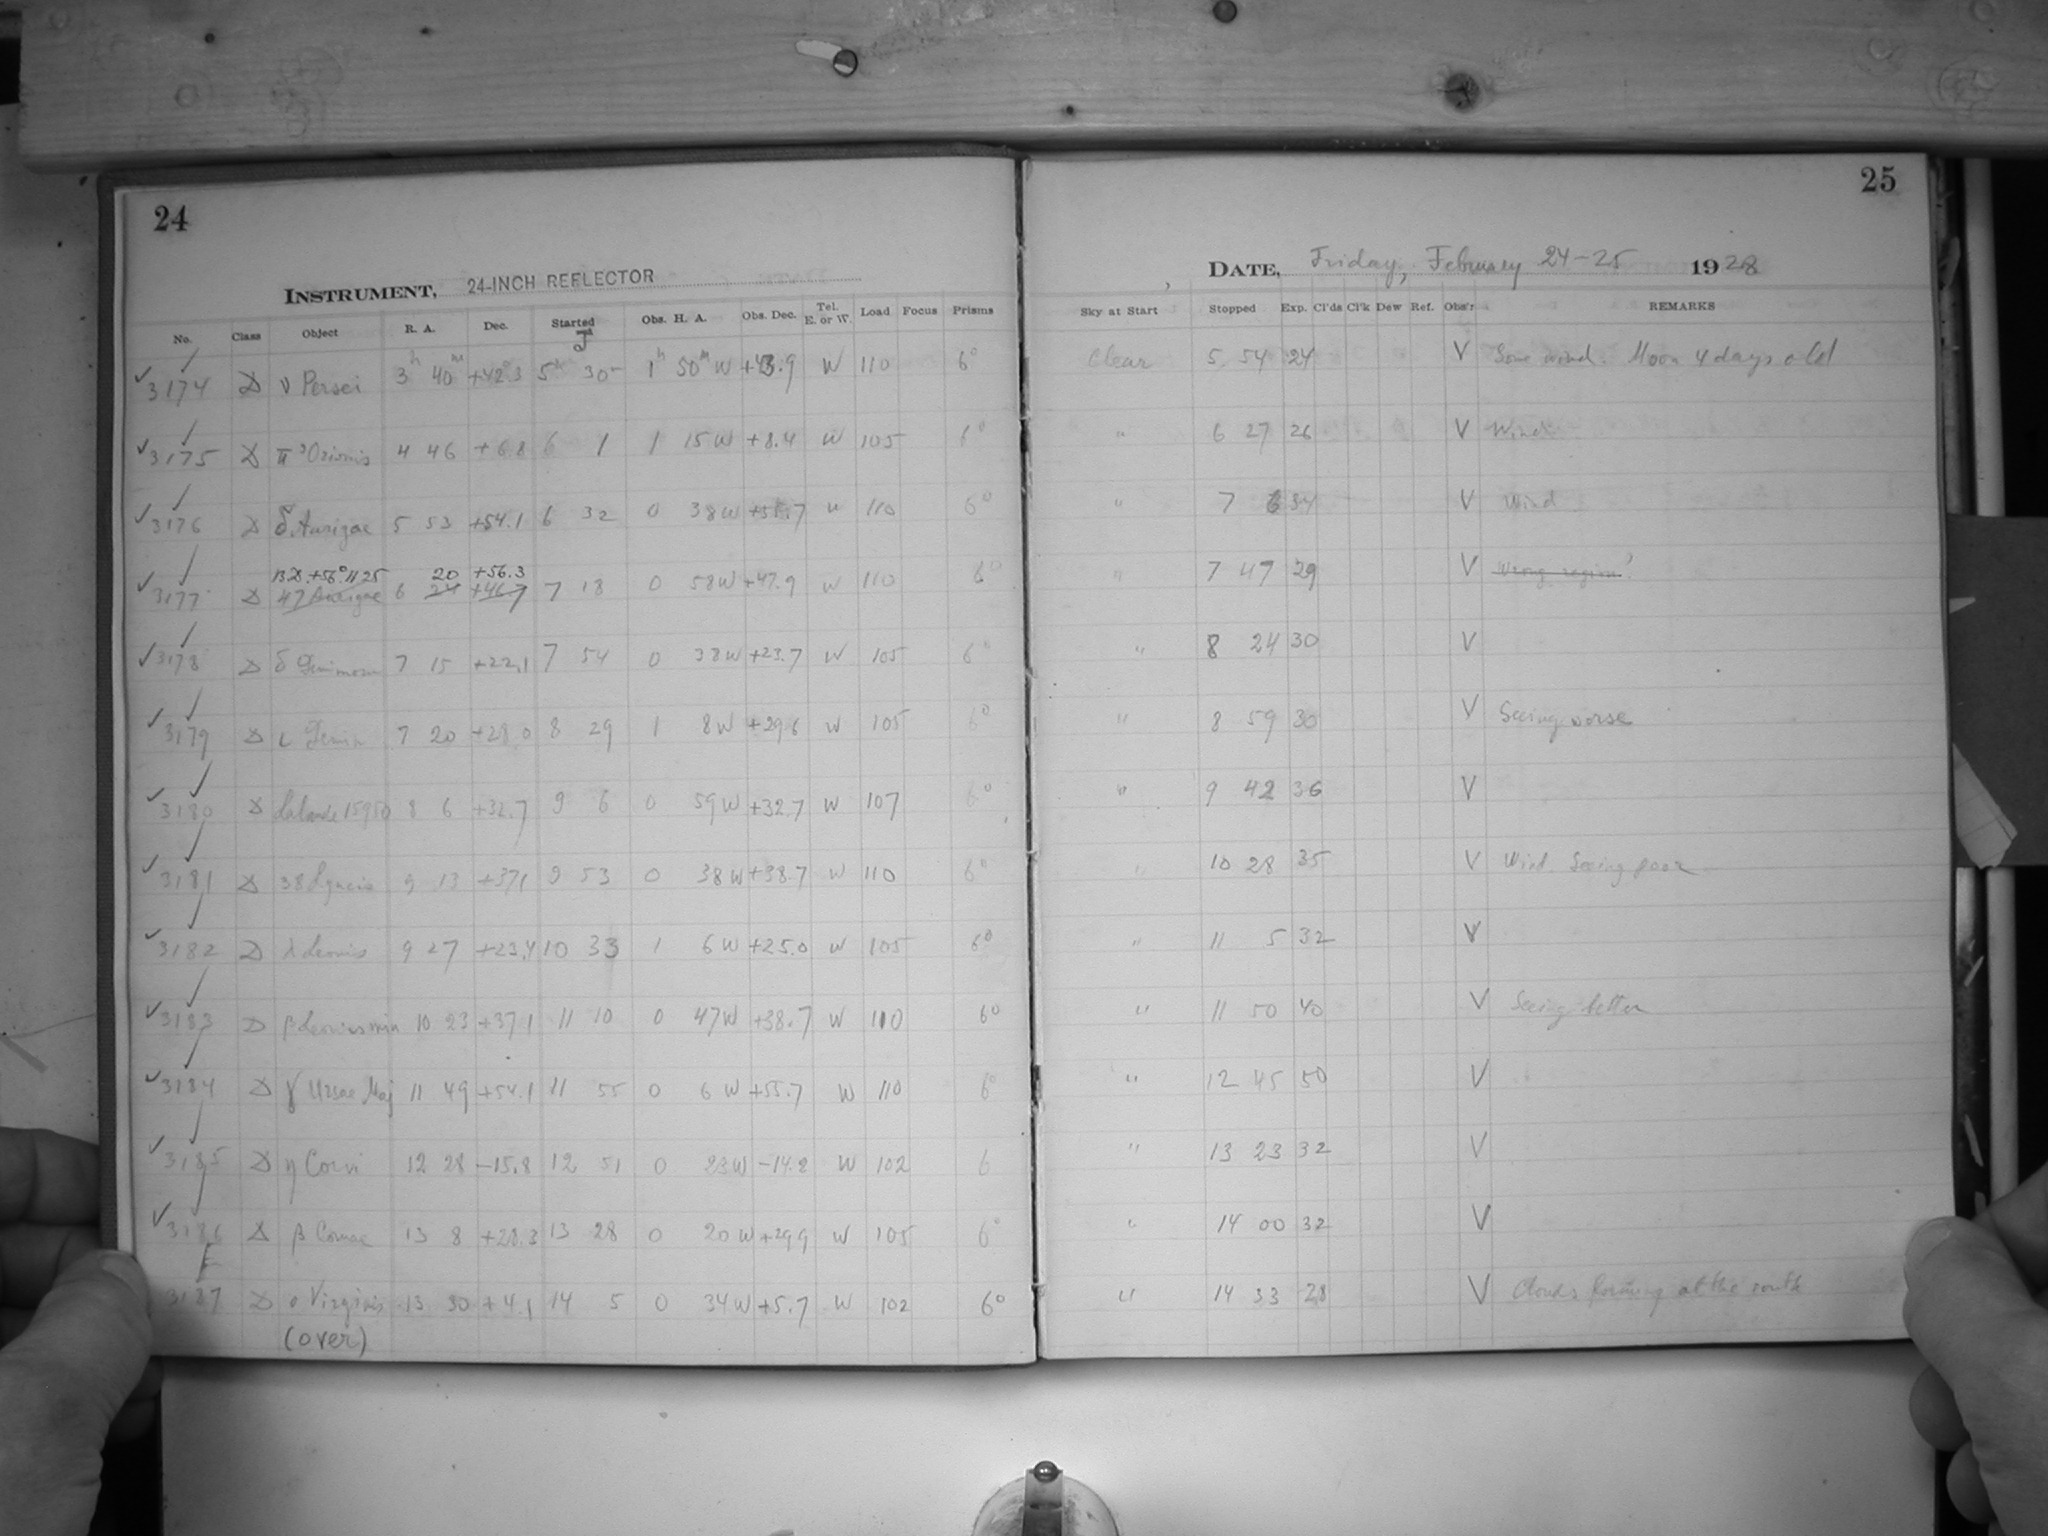 24
INSTRUMENT, 24-INCH REFLECTOR
No. Class Object R. A. Dec. Started Obs. H. A. Obs. Dec. Tel. E. or W. Load Focus Prisms
✓ 3174 D ν Persei 3h 40m +42°.3 5h 30 1h 50m W +43.9 W 110 6°
✓ 3175 D π³Orionis 4 46 +6.8 6 1 1 15 W +8.4 W 105 6°
✓ 3176 D δ Aurigae 5 53 +54.1 6 32 0 38 W +55.7 W 110 6°
B.D. +56° 1125 20 +56.3
✓ 3177 D 47 Aurigae 6 24 +46.7 7 18 0 58 W +47.9 W 110 6°
✓ 3178 D δ Geminorum 7 15 +22.1 7 54 0 38 W +23.7 W 105 6°
✓ 3179 D ι Gemin 7 20 +28.0 8 29 1 8 W +29.6 W 105 6°
✓ 3180 D Lalande 15950 8 6 +32.7 9 6 0 59 W +32.7 W 107 6°
✓ 3181 D 38 Lyncis 9 13 +37.1 9 53 0 38 W +38.7 W 110 6°
✓ 3182 D λ Leonis 9 27 +23.4 10 33 1 6 W +25.0 W 105 6°
✓ 3183 D β Leonis min 10 23 +37.1 11 10 0 47 W +38.7 W 110 6°
✓ 3184 D γ Ursae Maj 11 49 +54.1 11 55 0 6 W +55.7 W 110 6°
✓ 3185 D η Corvi 12 28 -15.8 12 51 0 23 W -14.2 W 102 6
✓ 3186 D β Comae 13 8 +28.3 13 28 0 20 W +29.9 W 105 6°
E
3187 D o Virginis 13 30 +4.1 14 5 0 34 W +5.7 W 102 6°
(over)
25
DATE, Friday, February 24-25 1928
Sky at Start Stopped Exp. Cl'ds Cl'k Dew Ref. Obs'r REMARKS
Clear 5 54 24 V Some wind. Moon 4 days old
" 6 27 26 V Wind
" 7 6 34 V Wind
" 7 47 29 V Wrong region?
" 8 24 30 V
" 8 59 30 V Seeing worse
" 9 42 36 V
" 10 28 35 V Wind. Seeing poor
" 11 5 32 V
" 11 50 40 V Seeing better
" 12 45 50 V
" 13 23 32 V
" 14 00 32 V
" 14 33 28 V Clouds forming at the south